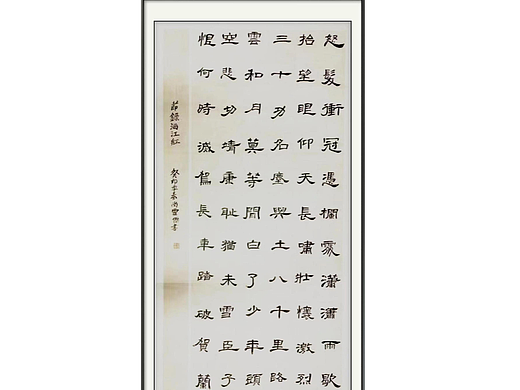 怒髮衝冠憑欄處瀟瀟雨歇
抬望眼仰天長嘯壯懷激烈
三十功名塵與土八千里路
雲和月莫等閒白了少年頭
空悲切靖康恥猶未雪臣子
恨何時滅駕長車踏破賀蘭
節錄滿江紅
癸卯年春